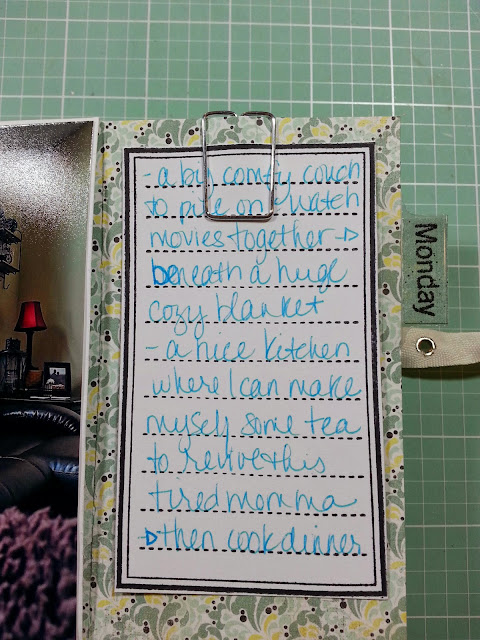 - a big comfy couch
to pile on & watch
movies together →
beneath a huge
cozy blanket
- a nice kitchen
where I can make
myself some tea
to revive this
tired momma
→ then cook dinner
Monday